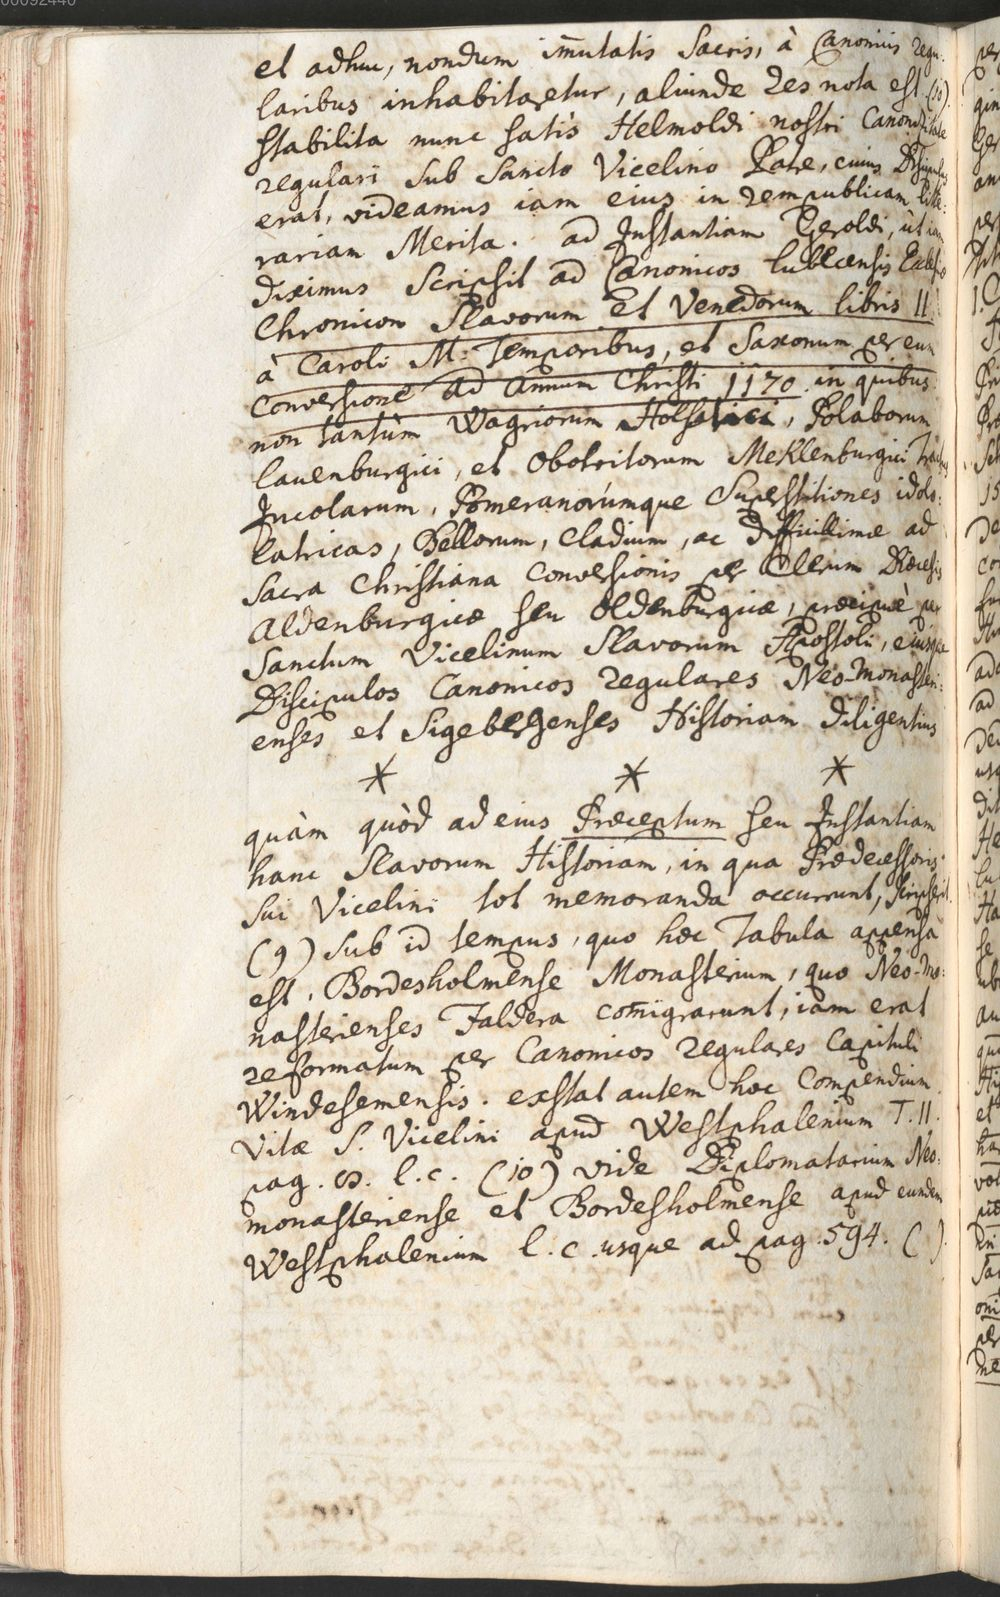 et adhuc, nondum im̄utatis Sacris, à Canonicis regu-
laribus inhabitaretur, aliunde res nota est (10).
Stabilita nunc satis Helmoldi nostri Canonicitate
regulari sub Sancto Vicelino Patre, cuius Discipulus
erat, videamus iam eius in rempublicam litte:
rariam Merita. ad Instantiam Geroldi, ùt iam
diximus Scripsit ad Canonicos lubecensis Ecclesiæ
Chronicon Slavorum Et Venedorum libris II.
à Caroli M: Temporibus, et Saxonum per eum
conversione ad annum Christi 1170. in quibus
non tantùm Wagriorum Holsatici, Polaborum
lauenburgici, et Obotritorum Meklenburgici Tractus
Incolarum, Pomeranorúmque Superstitiones idolo:
latricas, Bellorum, cladium, ac difficillimæ ad
Sacra Christiana conversionis per Clerum Diœcesis
Aldenburgicæ seu Oldenburgicæ, præcipuè per
Sanctum Vicelinum Slavorum Apostoli, eiusque
Discipulos Canonicos regulares Neo-monasteri:
enses et Sigebergenses Historiam diligentius
* * *
quàm quòd ad eius Præceptum seu Instantiam
hanc Slavorum Historiam, in qua Prædecessoris
sui Vicelini tot memoranda occurrunt, scripserit.
(9) Sub id tempus, quo hæc Tabula appensa
est, Bordesholmense Monasterium, quo Neo-mo:
nasterienses Faldera com̄igrarunt, iam erat
reformatum per Canonicos regulares Capituli
Windesemensis. exstat autem hoc Compendium
Vitæ S. Vicelini apud Westphalenium T. II.
pag. ∞. l. c. (10) vide Diplomatarium Neo:
monasteriense et Bordesholmense apud eundem
Westphalenium l. c. usque ad pag. 594. ( ).